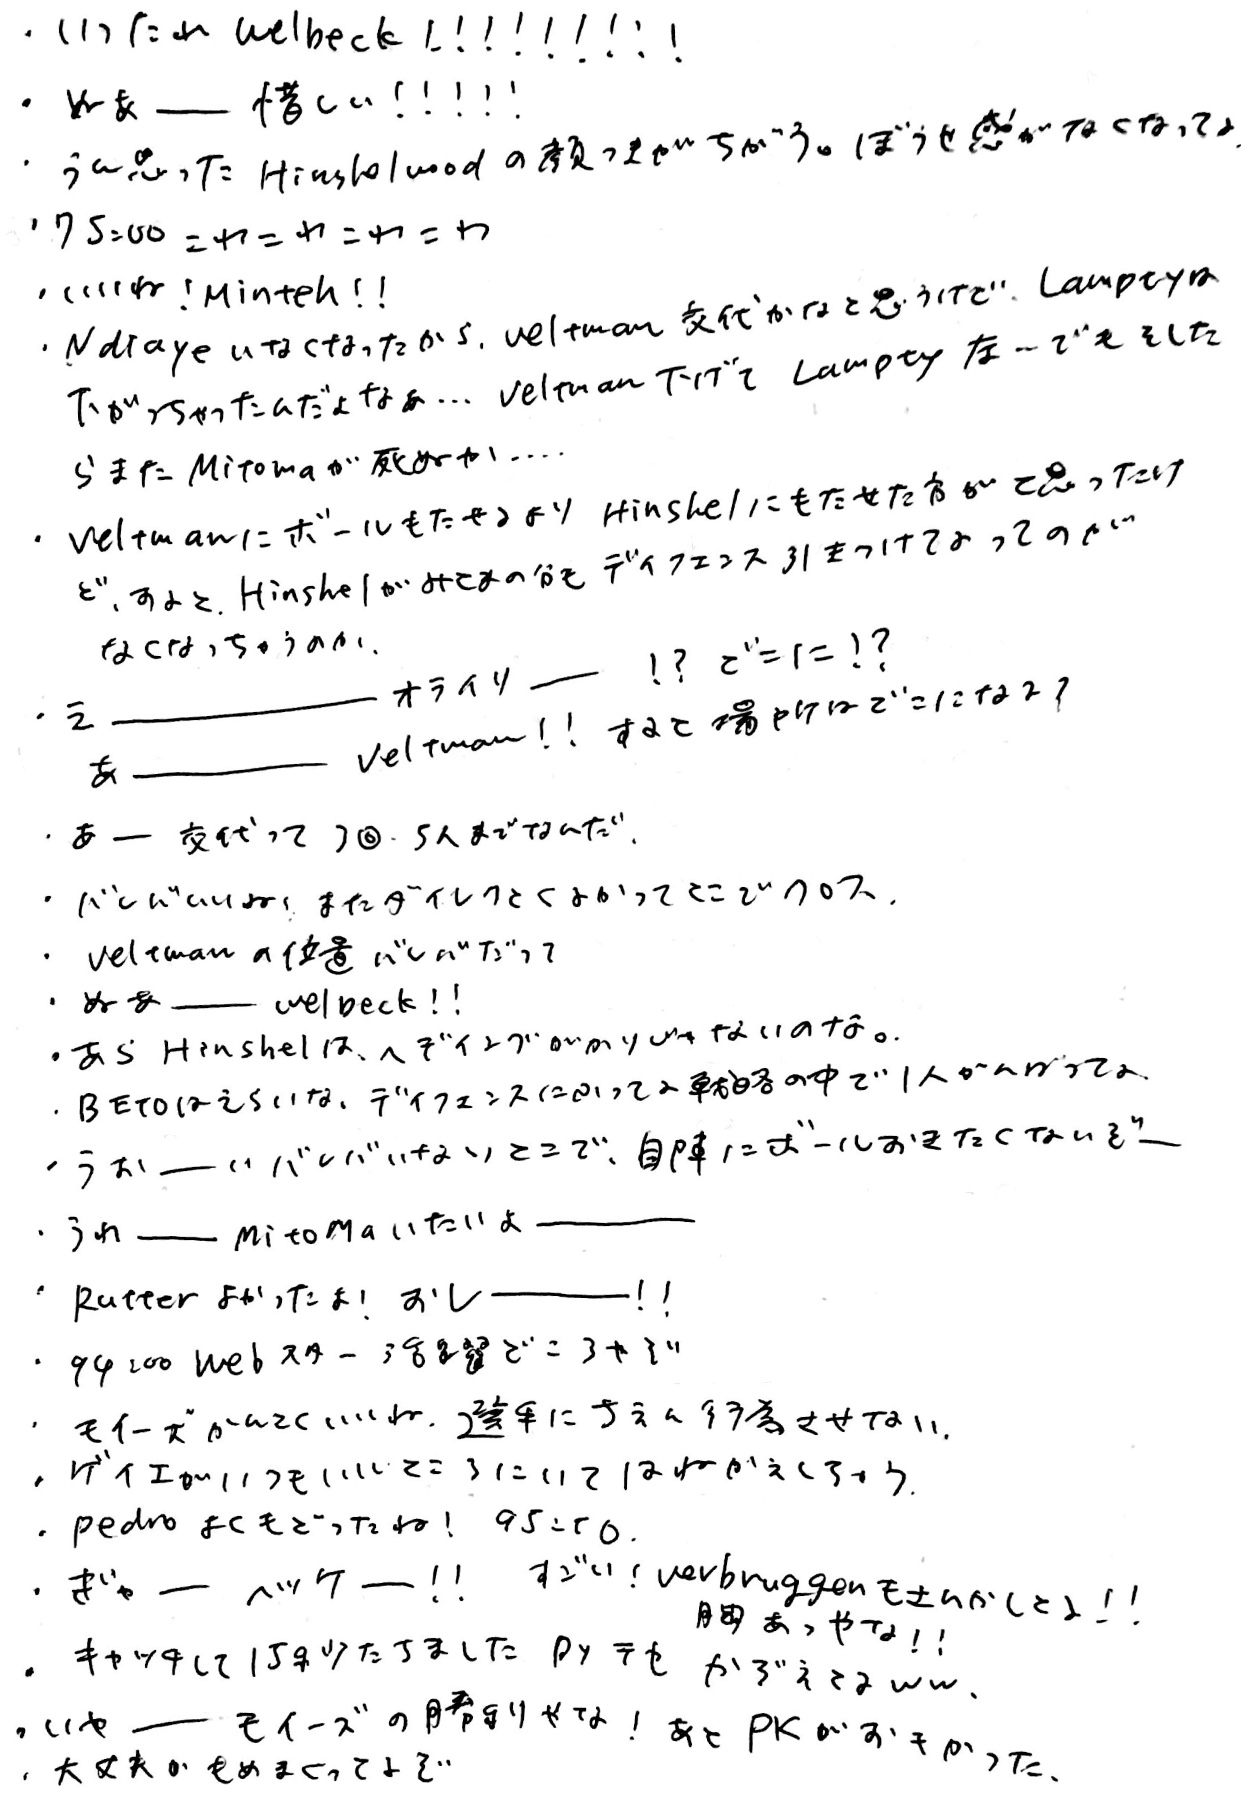 ・いったれ Welbeck!!!!!!!!!
・ぬあ── 惜しい!!!!!
・うん思った Hinshelwood の顔つきがちがう。ぼうせ感がなくなってる.
・75:00 こわこわこわこわ
・いいね!Minteh!!
・Ndiaye いなくなったから、Veltman 交代かなと思うけど、Lamptyは
下がっちゃったんだよなぁ… Veltman下げて Lampty 左ーでもそした
らまた Mitomaが死ぬか....
・Veltmanにボールもたせるより Hinshelにもたせた方がて思ったけ
ど、すると、Hinshelがみとまの分も ディフェンス引きつけてるってのが
なくなっちゃうのか.
・え────オライリー──!? どこに!?
あ────Veltman!! すると場所はどこになる?
・あー 交代って3回・5人までなんだ.
・バレバいいね! またダイレクとくるかってとこでクロス.
・Veltman の位置バレバだって
・ぬあ──Welbeck!!
・あら Hinshelは、ヘディングがかりじゃないのな。
・BETOはえらいな、ディフェンスにふってる戦略の中で1人がんばってる.
・うおーいバレバいないとこで、自陣にボールおきたくないぞー
・うわ── MitoMa いたいよ────
・Rutter よかったよ! おし───!!
・94:00 Webスター 活躍どころやぞ
・モイーズかんとくいいね. 選手にちえん行為させない.
・ゲイエがいつもいいところにいてはねかえしちゃう.
・pedro よくもどったね! 95:50.
・ぎゃー ベッケー!! すごい! Verbruggenもさんかしとる!!
胸あつやな!!
・キャッチして15秒たちました PYテも かぞえてるww.
・いやー モイーズの勝利やな! あと PKがおもかった.
・大丈夫か もめまくってるぞ